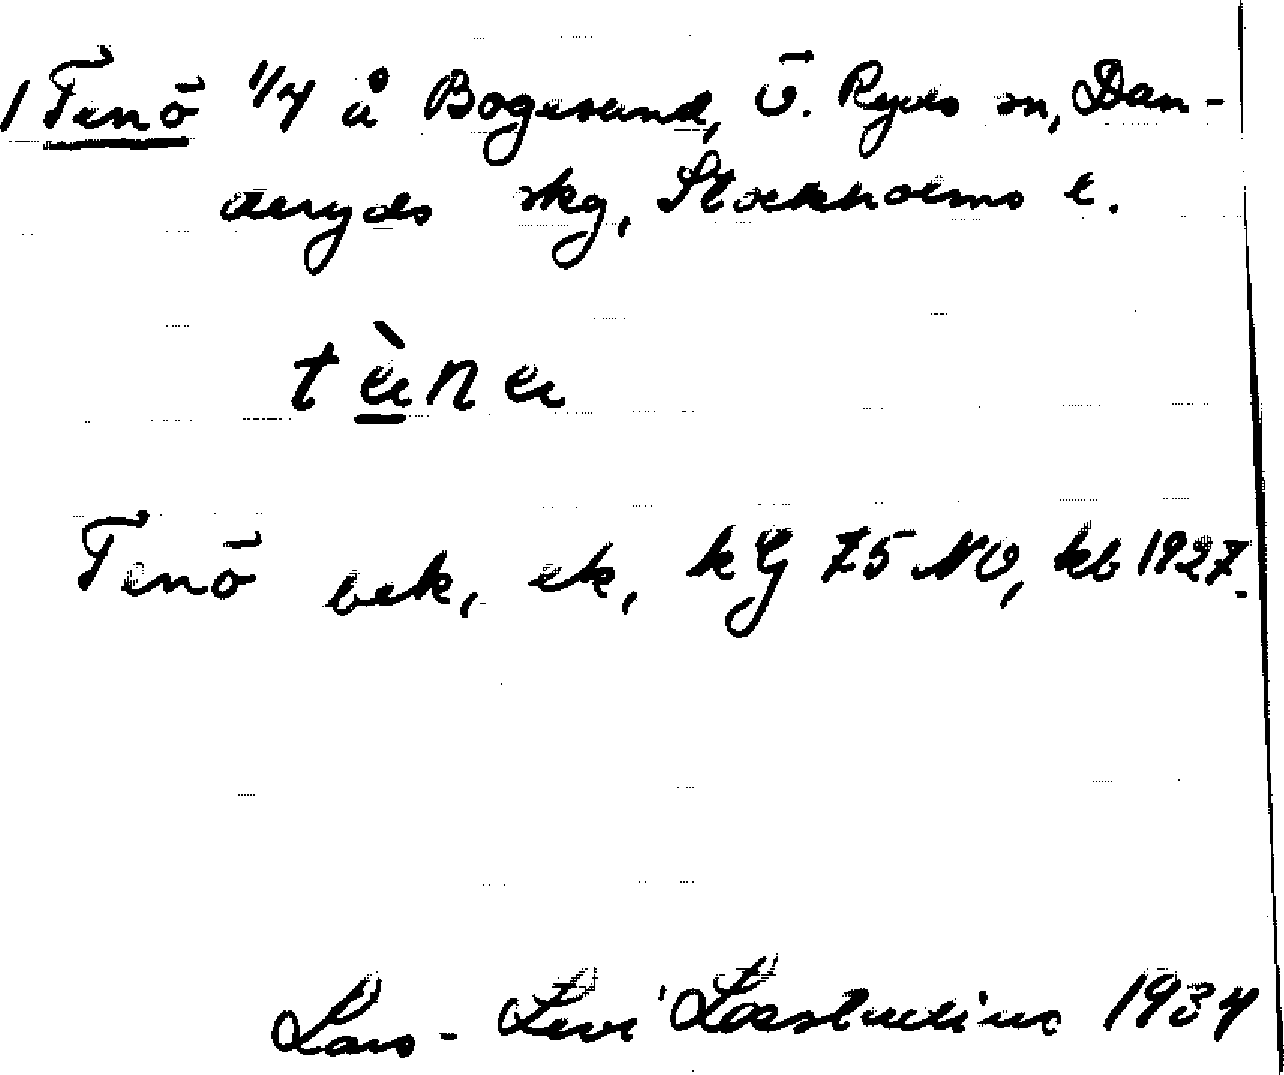 1 Tenö 1/4 å Bogesund, Ö. Ryds sn, Dan-
deryds skg, Stockholms l.
Tenö bek, ek, kG 75 NO, kb 1927.
Lars-Levi Læstadius 1934